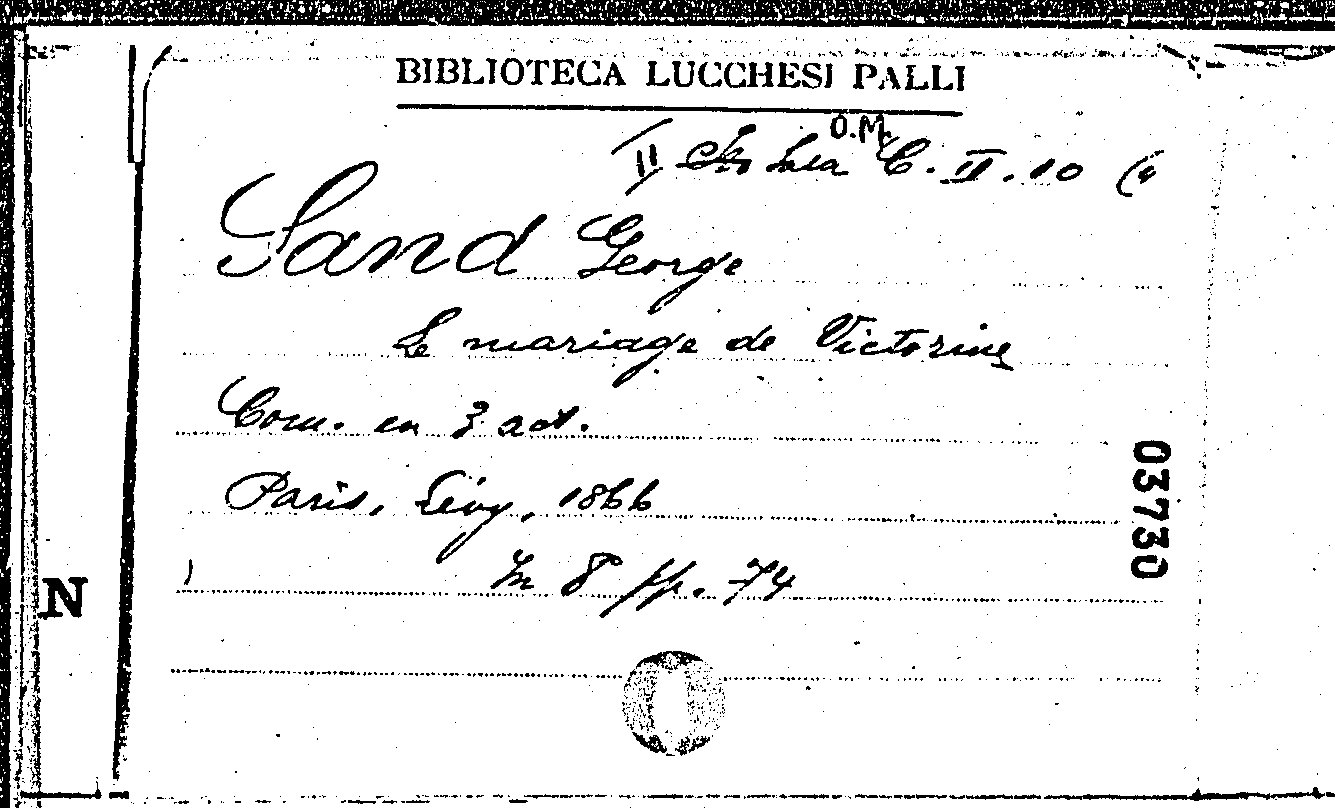 BIBLIOTECA LUCCHESI PALLI
O.M.
C. II. 10 (4
Sand George
Le mariage de Victorine
Com. en 3 act.
Paris, Lévy, 1866
In 8° pp. 74
03730
N